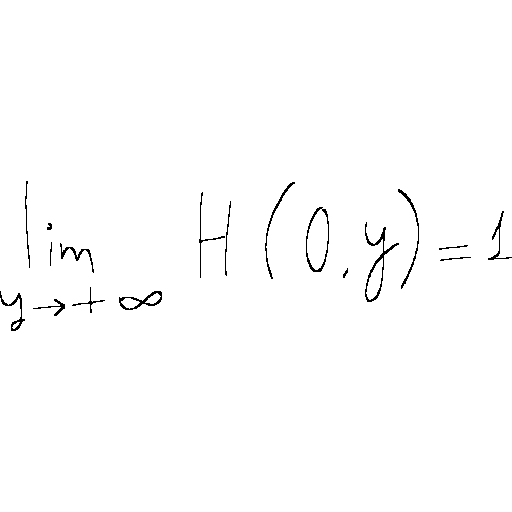 \lim_{y \to +\infty} H(0, y) = 1